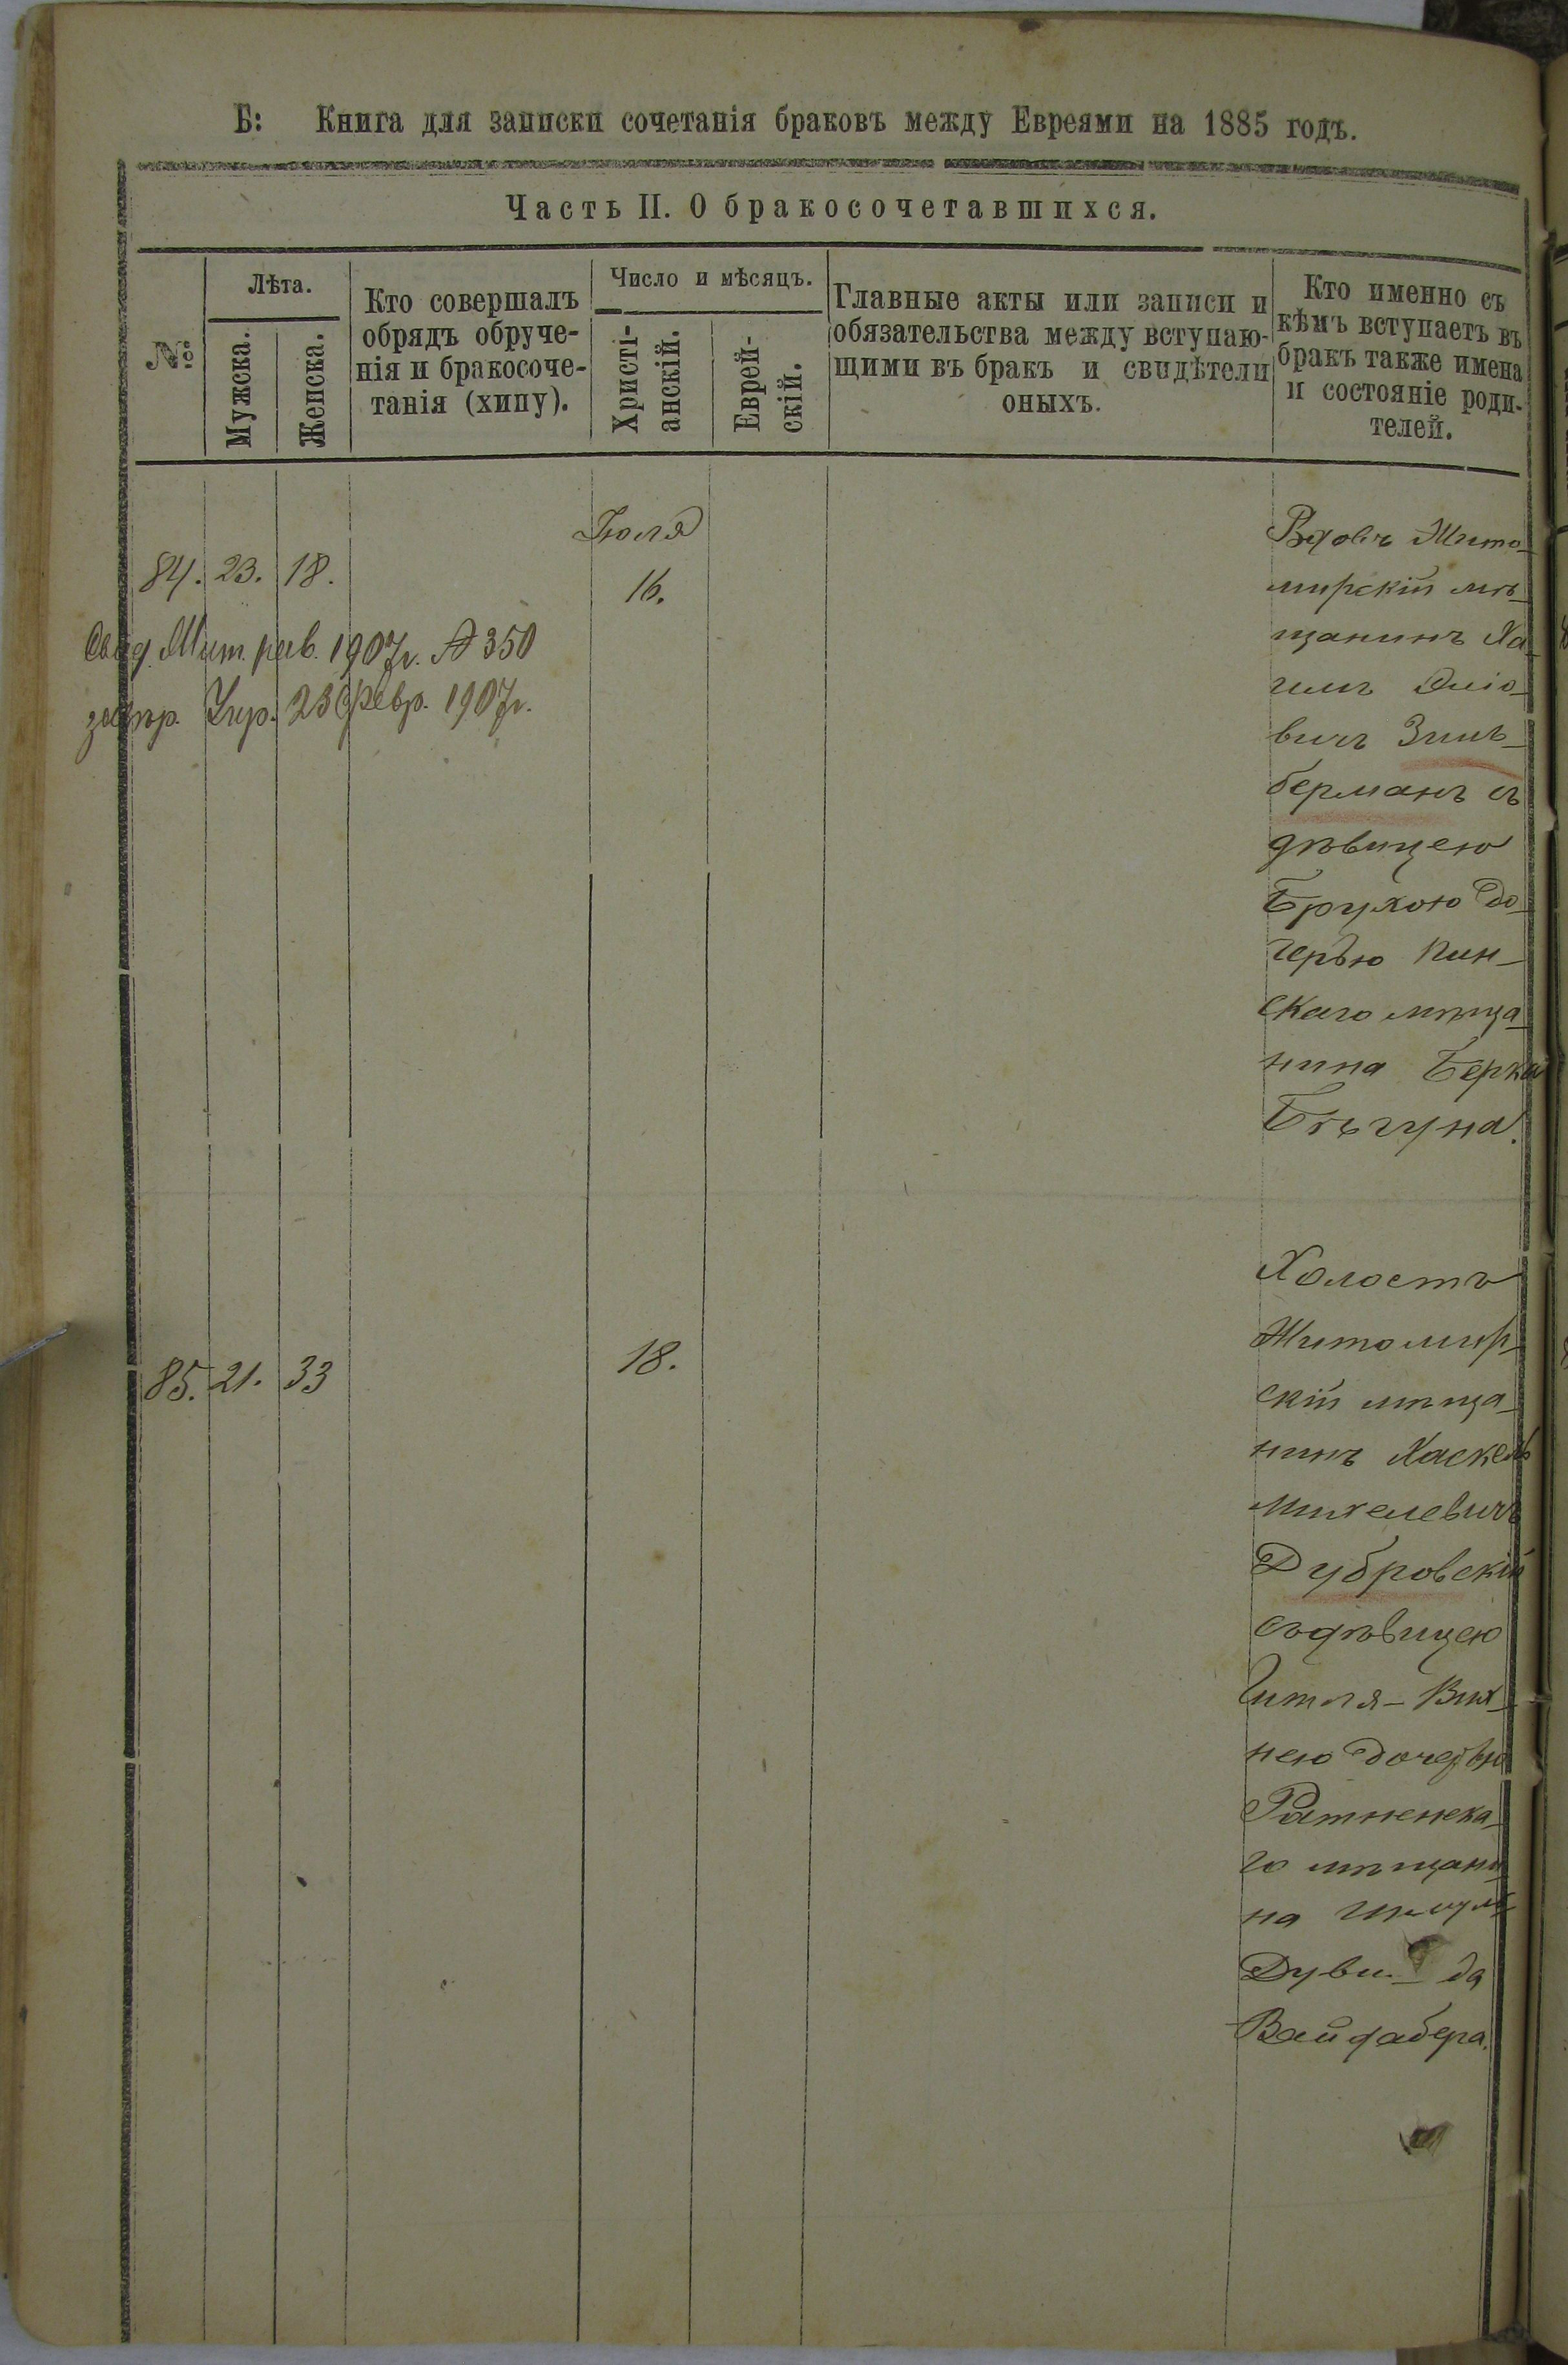 Б: Книга для записки сочетанія браковъ между Евреями на 1885 годъ.
Часть II. О бракосочетавшихся.
№
Лѣта.
Мужска.
Женска.
Кто совершалъ
обрядъ обруче-
нія и бракосоче-
танія (хипу).
Число и мѣсяцъ.
Христі-
анскій.
Еврей-
скій.
Главные акты или записи и
обязательства между вступаю-
щими въ бракъ и свидѣтели
оныхъ.
Кто именно съ
кѣмъ вступаетъ въ
бракъ также имена
и состояніе роди-
телей.
84. 23. 18.
Іюля
16.
Вдовъ Жито-
мирскій мѣ-
щанинъ Ха-
имъ
вичъ Зиль-
берманъ съ
дѣвицею
Брухою до-
черью Пин-
скаго мѣща-
нина Берка
Бѣгуна.
Свид. Жит. рав. 1907г. № 350
Упр. 23 Февр. 1907г.
85. 21. 33
18.
Холостъ
Житомир-
скій мѣща-
нинъ Хаскель
Михелевичъ
Дубровскій
съ дѣвицею
Гитля-Вих-
нею дочерью
Ратненска-
го мѣщани-
на Шмуль
Дуви- да
Вайдабера.